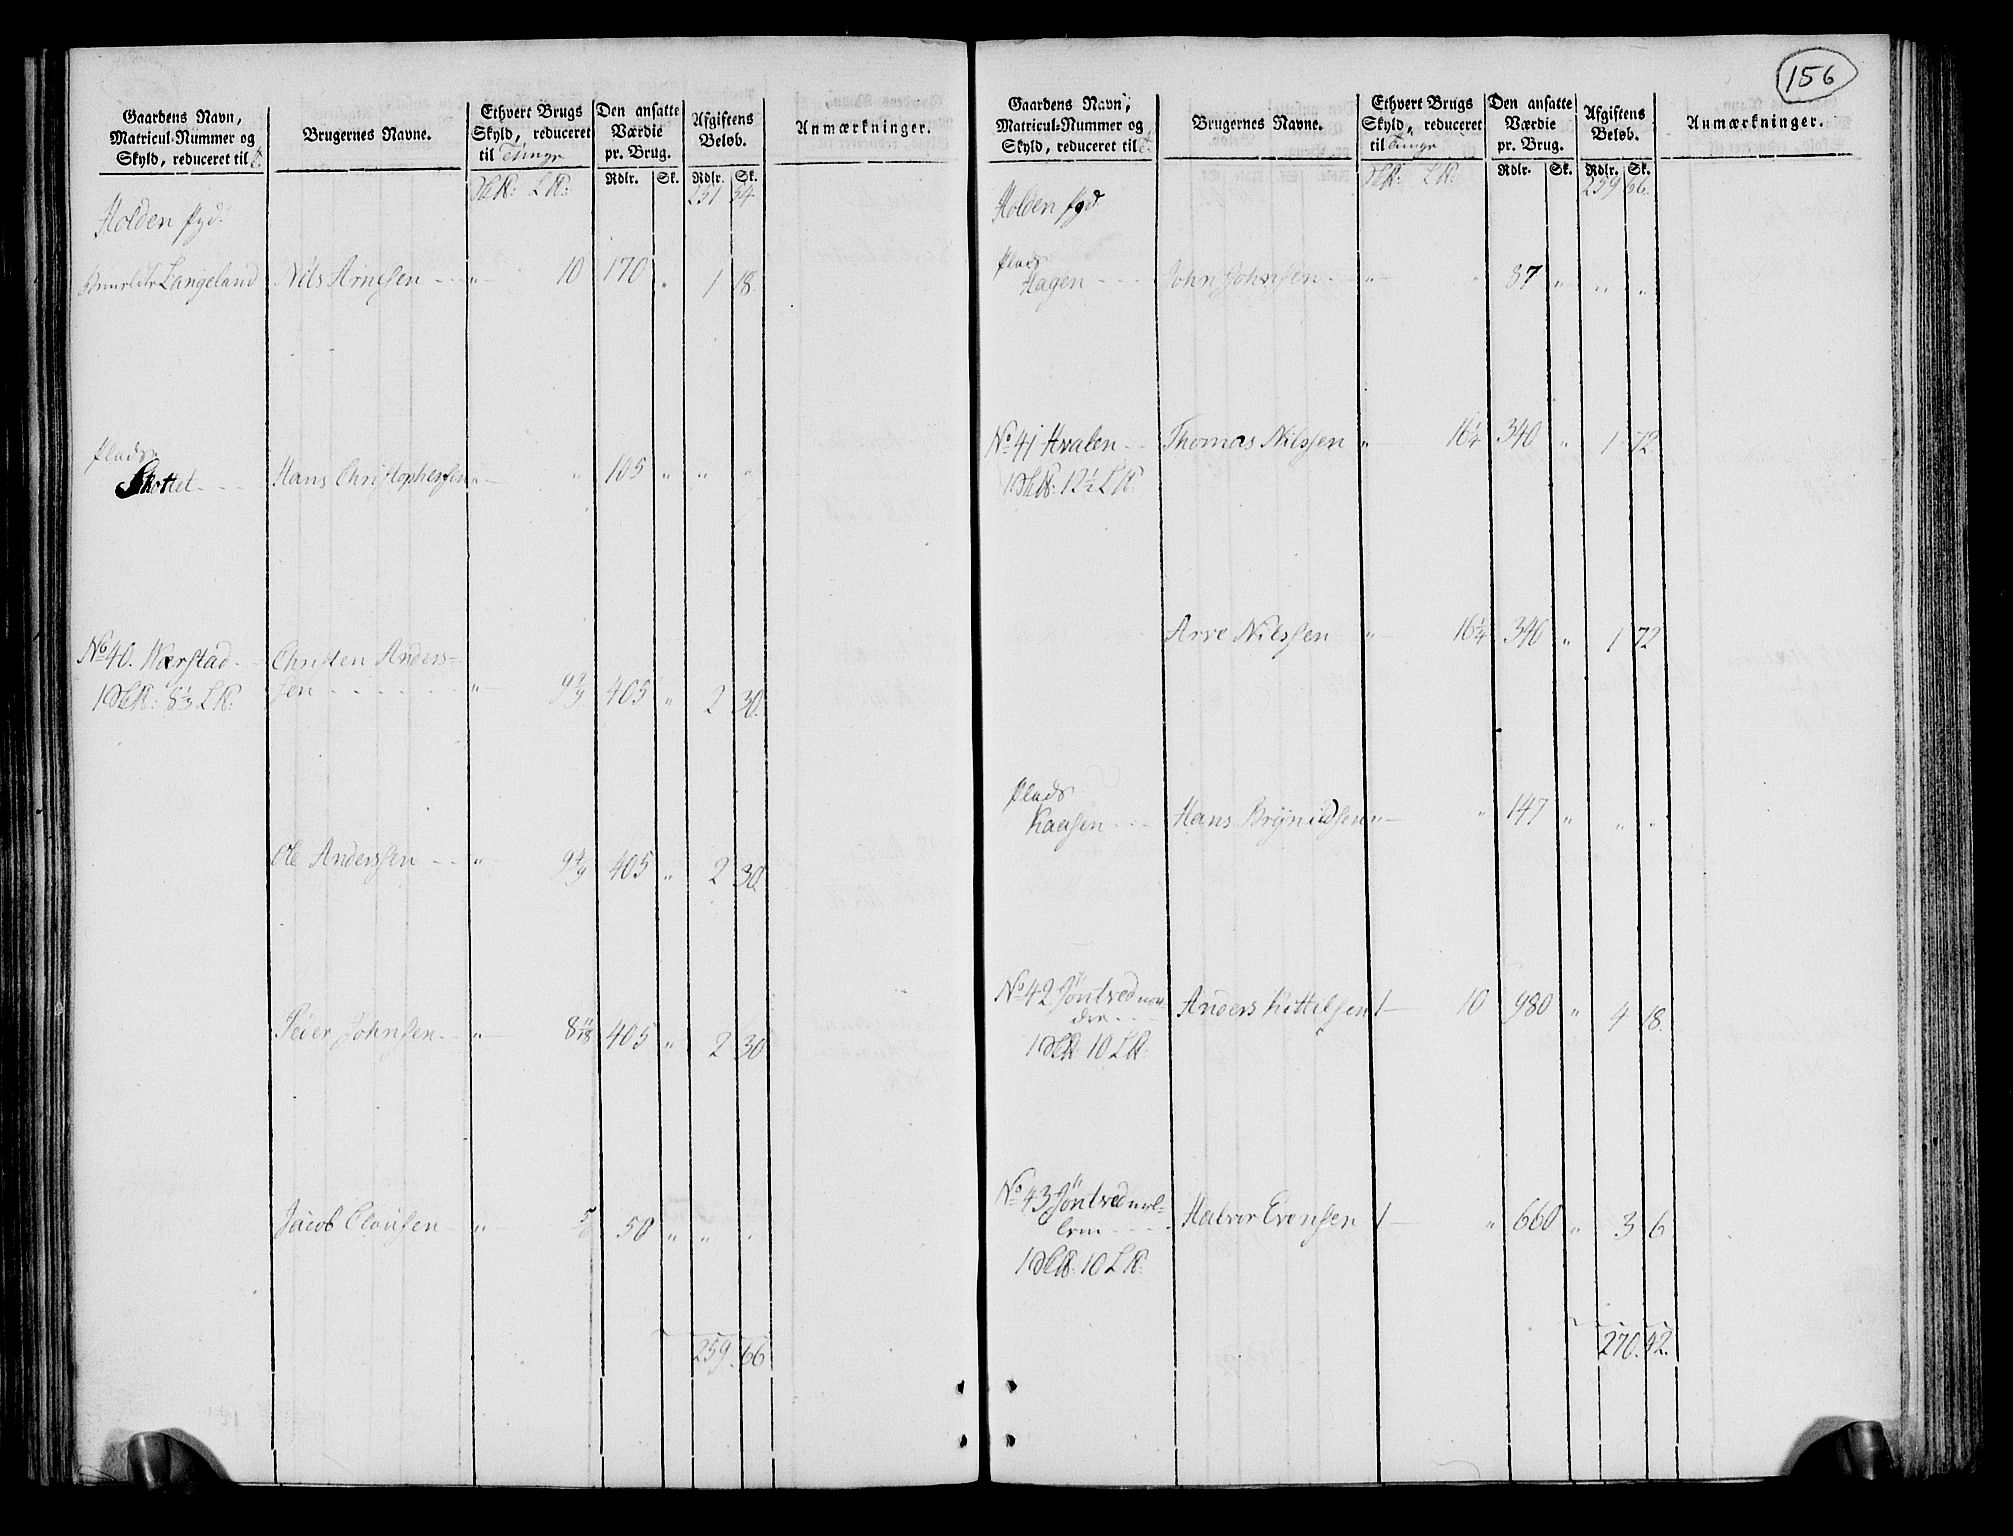 156
Gaardens Navn, Matricul-Nummer og Skyld, reduceret til
Brugernes Navne.
Ethvert Brugs Skyld, reduceret til Tunge
Den ansatte Værdie pr. Brug.
Afgiftens Beløb.
Anmærkninger.
Rdlr. Sk. Rdlr. Sk.
251 54
Holden
Langeland Nils Arnesen " 10 170 " 1 18
Plads
Hans Christophersen " " 105 " " "
No 40. Værstad Christen Anders-
1 8⅓ sen " 9 4/9 405 " 2 30
Ole Anderssen " 9 4/9 405 " 2 30.
Peder Johnsen " 8 11/18 405 " 2 30
Jacob Clausen " 50 " " "
259. 66
Gaardens Navn, Matricul-Nummer og Skyld, reduceret til
Brugernes Navne.
Ethvert Brugs Skyld, reduceret til Tunge
Den ansatte Værdie pr. Brug.
Afgiftens Beløb.
Anmærkninger.
Rdlr. Sk. Rdlr. Sk.
259 66.
Holden
Plads
Hagen John Johnsen " " 87 " " "
No 41 Hvalen Thomas Nilssen " 16¼ 340 " 1 72
1 12½
Arve Nilssen " 16¼ 340 " 1 72
Plads
Kaasen Hans Brynildsen " " 147 " " "
No 42 Jöntved Anders Kittilsen 1 10 980 " 4 18
1 10
No 43 Jöntved Halvor Evensen 1 " 660 " 3 6
1 10
270. 42.